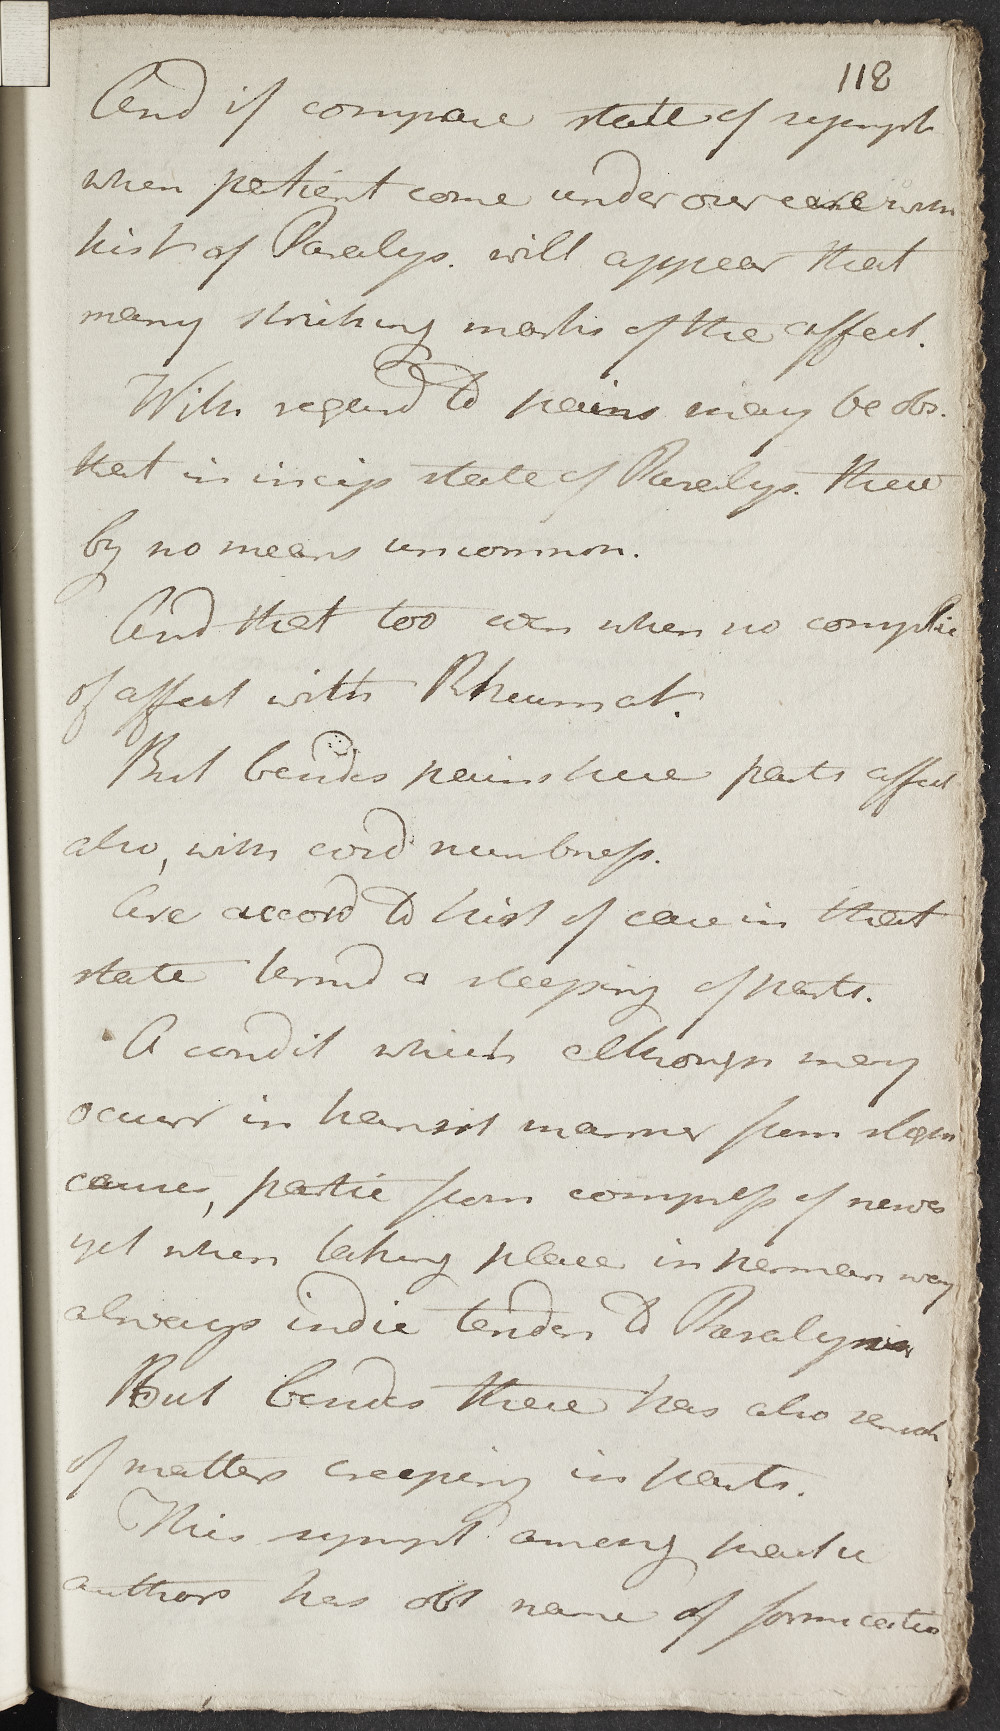 118
And if compare state of sympt
when patient come under our care with
hist of Paralys. will appear that
many striking marks of the affect.
With regard to pains may be obs.
that in incip state of Paralys. these
by no means uncommon.
And that too even when no complic
of affect with Rheumat.
But besides pains here parts affect
also, with cold numbness.
Are accord to hist of case in that
state termd a sleeping of parts.
A condit which although may
occurr in transit manner from slight
causes, partic from compress of nerves
yet when taking place in perman way
always indic tenden to Paralysis
But besides these has also sensat
of matters creeping in parts.
This sympt among pract
authors has obt name of formicatio